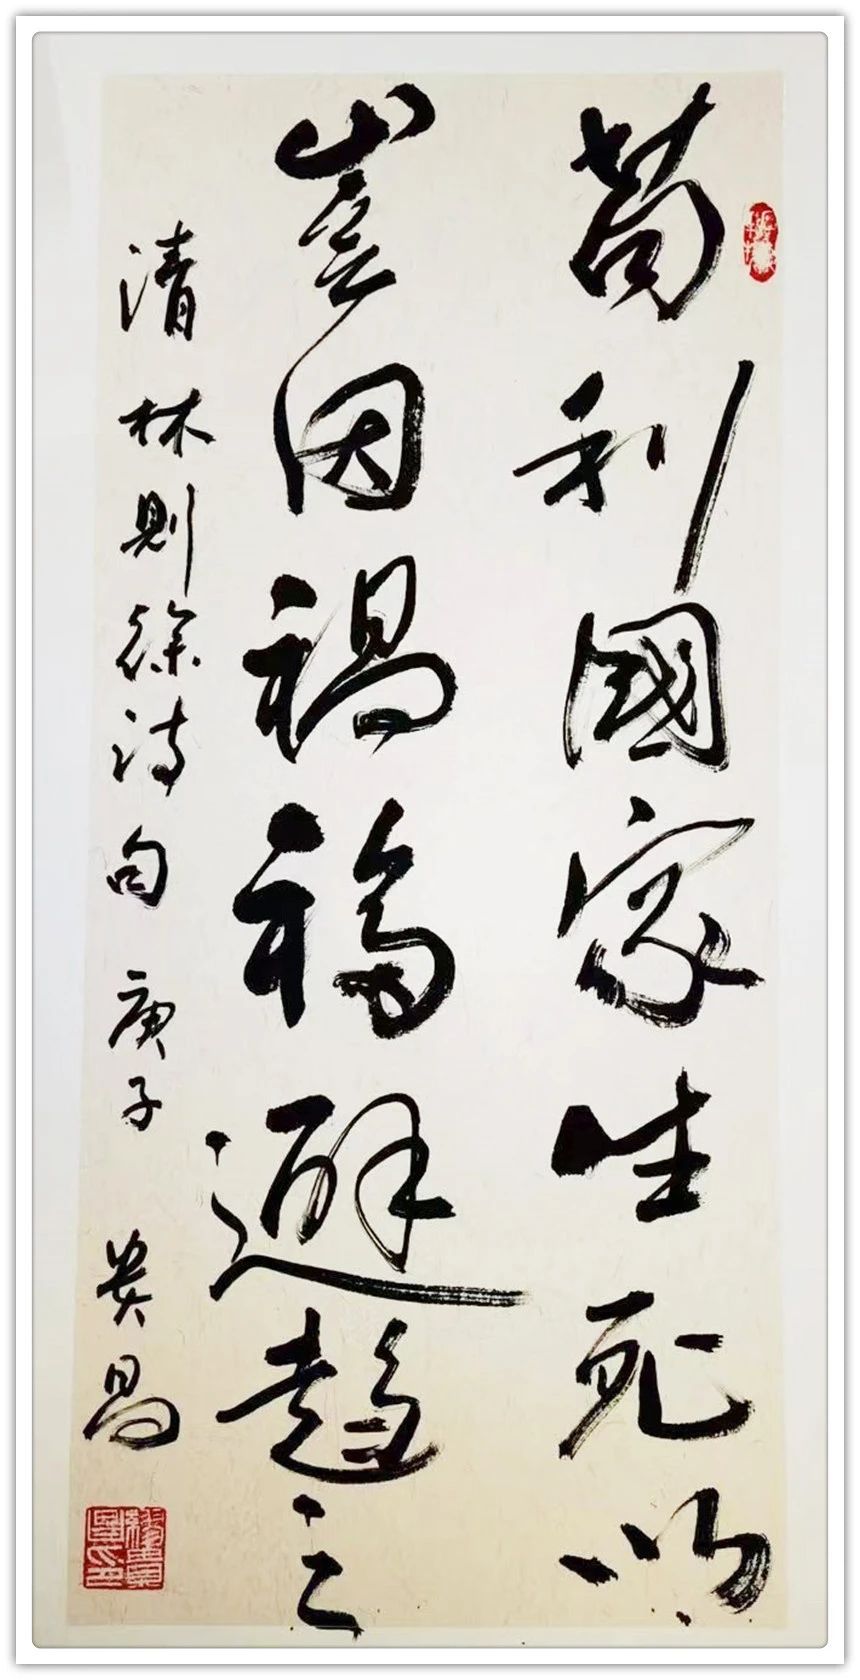 苟利國家生死以
豈因禍福避趨之
清林則徐詩句 庚子 貴昌